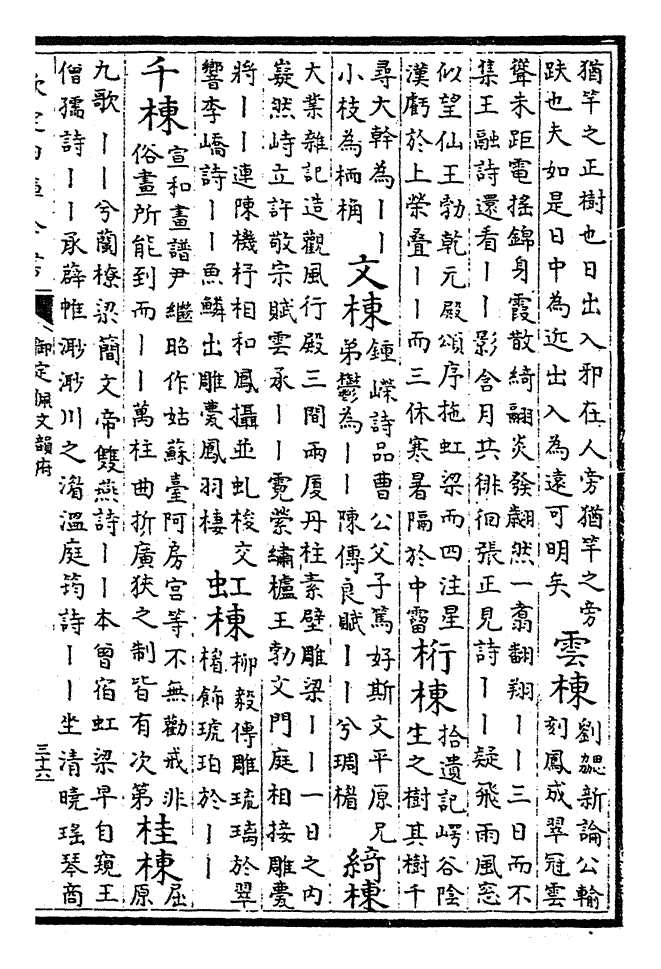 猶竿之正樹也日出入邪在人旁猶竿之旁
趺也夫如是日中為近出入為遠可明矣
雲棟
劉勰新論公輸
刻鳳成翠冠雲
聳朱距電搖錦身霞散綺翮炎發翽然一翥翻翔丨丨三日而不
集王融詩還看丨丨影含月共徘徊張正見詩丨丨疑飛雨風窓
似望仙王勃乾元殿頌序拖虹梁而四注星
漢虧於上榮疊丨丨而三休寒暑隔於中霤
桁棟
拾遺記崿谷陰
生之樹其樹千
尋大幹為丨丨
小枝為栭桷
文棟
鍾嶸詩品曹公父子篤好斯文平原兄
弟鬱為丨丨陳傅良賦丨丨兮琱楮
綺棟
大業雜記造觀風行殿三間兩厦丹柱素壁雕梁丨丨一日之内
嶷然峙立許敬宗賦雲承丨丨霓縈繡櫨王勃文門庭相接雕甍
將丨丨連陳機杼相和鳳攝並虬梭交
響李嶠詩丨丨魚鱗出雕甍鳳羽棲
虹棟
柳毅傳雕琉璃於翠
楣飾琥珀於丨丨
千棟
宣和畫譜尹繼昭作姑蘇臺阿房宫等不無勸戒非
俗畫所能到而丨丨萬柱曲折廣狹之制皆有次第
桂棟
屈
原
九歌丨丨兮蘭橑梁簡文帝雙燕詩丨丨本曾宿虹梁早自窺王
僧孺詩丨丨承薜帷渺渺川之渚溫庭筠詩丨丨坐清曉瑤琴商
欽定四庫全書
御定佩文韻府
三十六